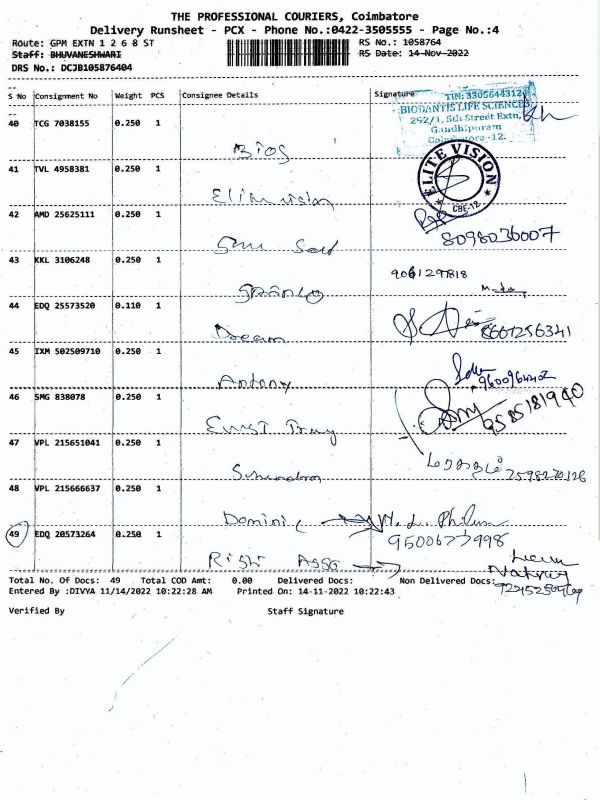 THE PROFESSIONAL COURIERS, Coimbatore
Delivery Runsheet - PCX - Phone No.:0422-3505555 - Page No.:4
Route: GPM EXTN 1 2 6 8 ST RS No.: 1058764
Staff: BHUVANESHWARI RS Date: 14-Nov-2022
DRS No.: DCJB105876404
S No Consignment No Weight PCS Consignee Details Signature
TIN: 33056443124
BIOGANTIS LIFE SCIENCES
292/1, 5th Street Extn,
Gandhipuram
Coimbatore -12.
40 TCG 7038155 0.250 1
Bios
ELITE VISION
CBE-12
41 TVL 4958381 0.250 1
Elite vision
42 AMD 25625111 0.250 1
8098036007
43 KKL 3106248 0.250 1
9061297818
44 EDQ 25573520 0.110 1
Dream
8661256341
45 IXM 502509710 0.250 1
Antony
46 SMG 838078 0.250 1
9585181940
Ernst
47 VPL 215651041 0.250 1
Surendra
48 VPL 215666637 0.250 1
Dominic
49 EDQ 20573264 0.250 1
9500677998
Rishi Asso
Total No. Of Docs: 49 Total COD Amt: 0.00 Delivered Docs: Non Delivered Docs:
Entered By :DIVYA 11/14/2022 10:22:28 AM Printed On: 14-11-2022 10:22:43
Verified By Staff Signature